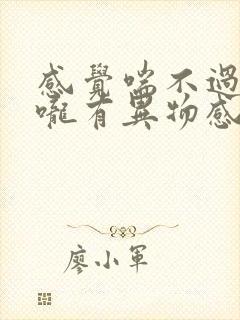 感覺喘不過
嚨有異物感
廖小軍